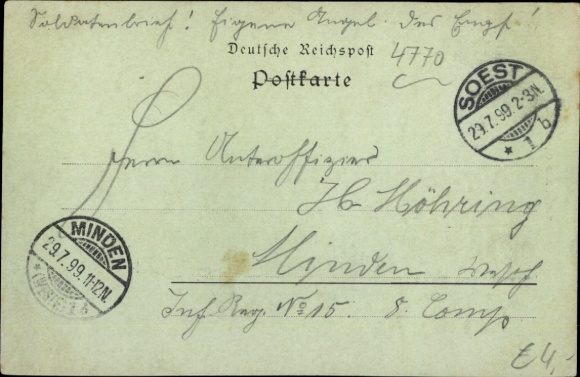 Soldatenbrief! Eigene Angel. des Empf!
Deutsche Reichspost
4770
Postkarte
SOEST
29.7.99.2-3N.
* 1 b
Herrn Unteroffizier
H. Höhring
MINDEN
29.7.99.11-12N.
*(WESTF.) 1 b
Minden Westf
Inf. Reg. No 15. 8. Comp
£4,-